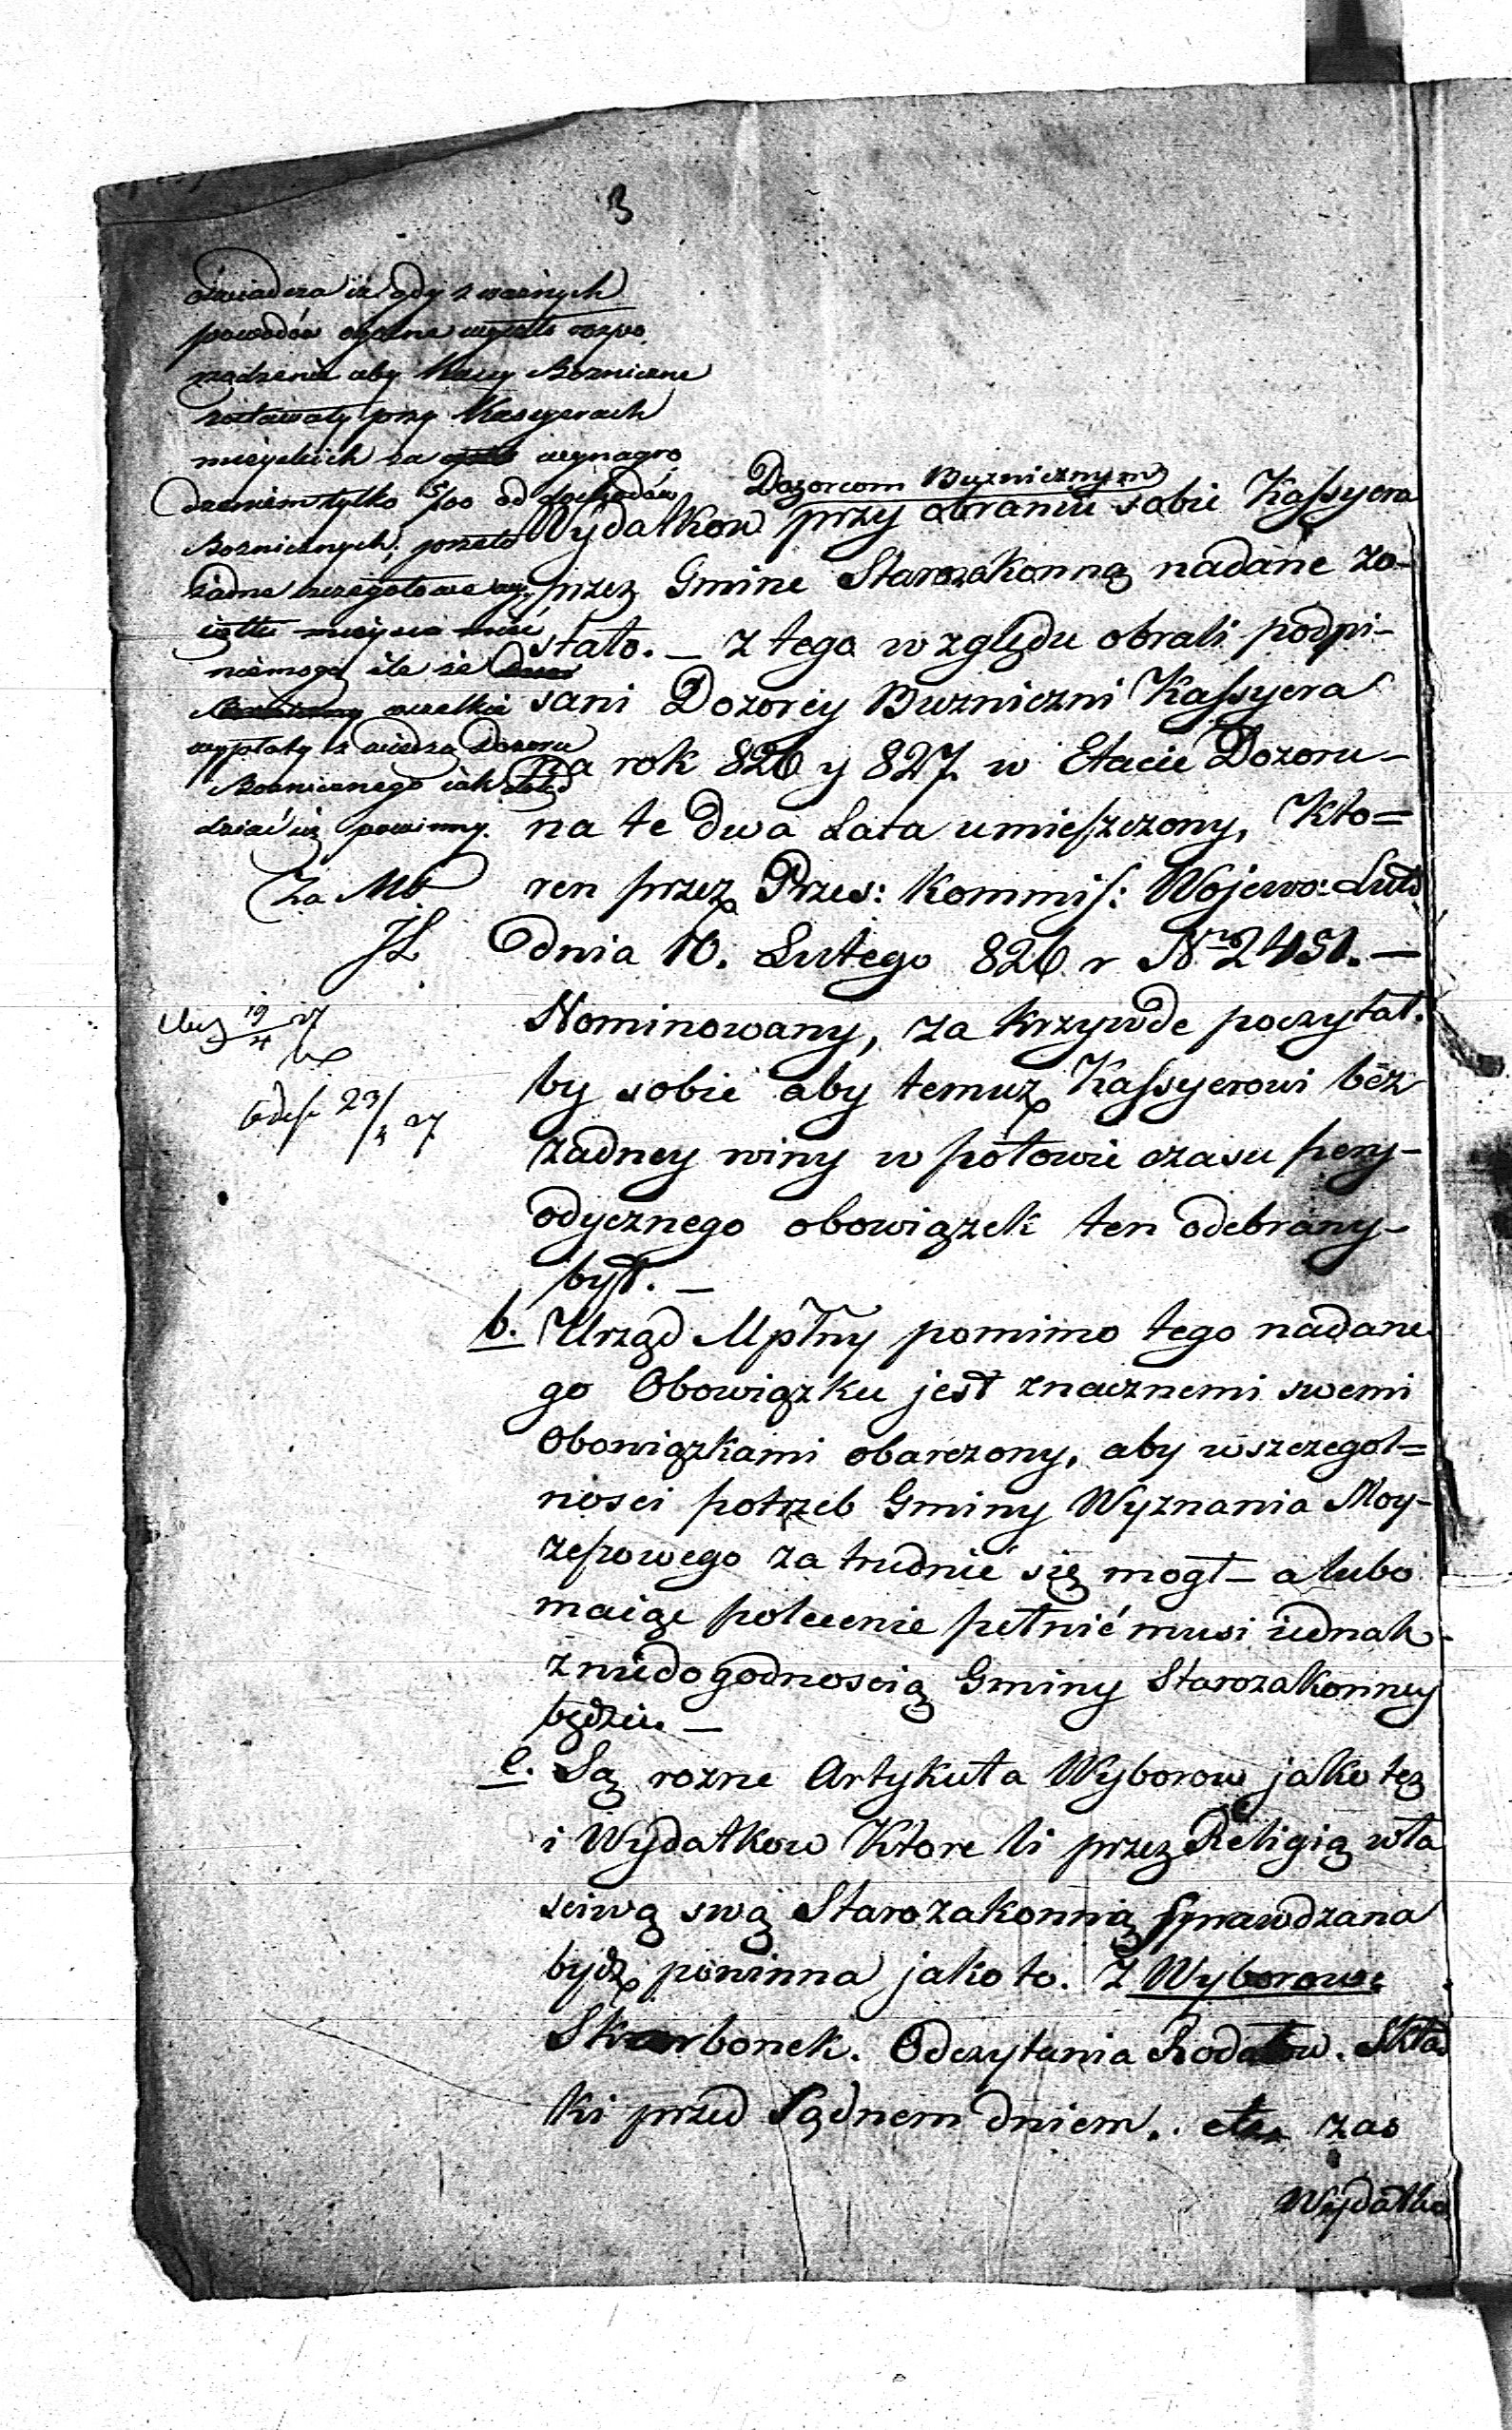 3
oświadcza iż gdy z ważnych
powodów ogólne wyszło rozpo
rządzenie aby Kassy Bożniczne
zostawały przy Kassyerach
mieyskich za wynagro
dzeniem tylko 5/00 od dochodów
Bożnicznych, przeto
żadne szczegółowe wy-
iątki mieysca mieć
niemogą ile że
wszelkie
wypłaty z wiedzą Dozoru
Bożnicznego iak
dziać się powinny.
Za Mb
JL
19/4 27
23/4 27
Dozorcom Buznicznym
Wydatkow przy obraniu sobie Kassyera
przez Gmine Starozakonną nadane zo-
stało. — z tego względu obrali podpi-
sani Dozorcy Buzniczni Kassyera
na rok 826 y 827. w Etacie Dozoru-
na te dwa Lata umieszczony, Kto=
ren przez Przes: Kommis: Wojewo: Lub
dnia 10. Lutego 826 r Nr 2451. —
Nominowany, za krzywde poczytał.
by sobie aby temuz Kassyerowi bez
zadney winy w połowie czasu pery-
odycznego obowiązek ten odebrany-
był. —
b. Urząd Mplny pomimo tego nadane
go Obowiązku jest znacznemi swemi
Obowiązkami obarczony, aby wszczegol=
nosci potrzeb Gminy Wyznania Moy-
zeszowego zatrudnić się mogł — a lubo
maiąc polecenie pełnić musi iednak-
z niedogodnoscią Gminy Starozakonney
będzie. —
c. Są rozne Artykuła Wyborow jako tez
i Wydatkow Ktore li przez Religią wła
sciwą swą Starozakonną sprawdzana
bydz powinna jako to. Z Wyborow:
Skarbonek. Odczytania Rodałow. Skład
ki przed Sądnem dniem.. etc. zas
Wydatko